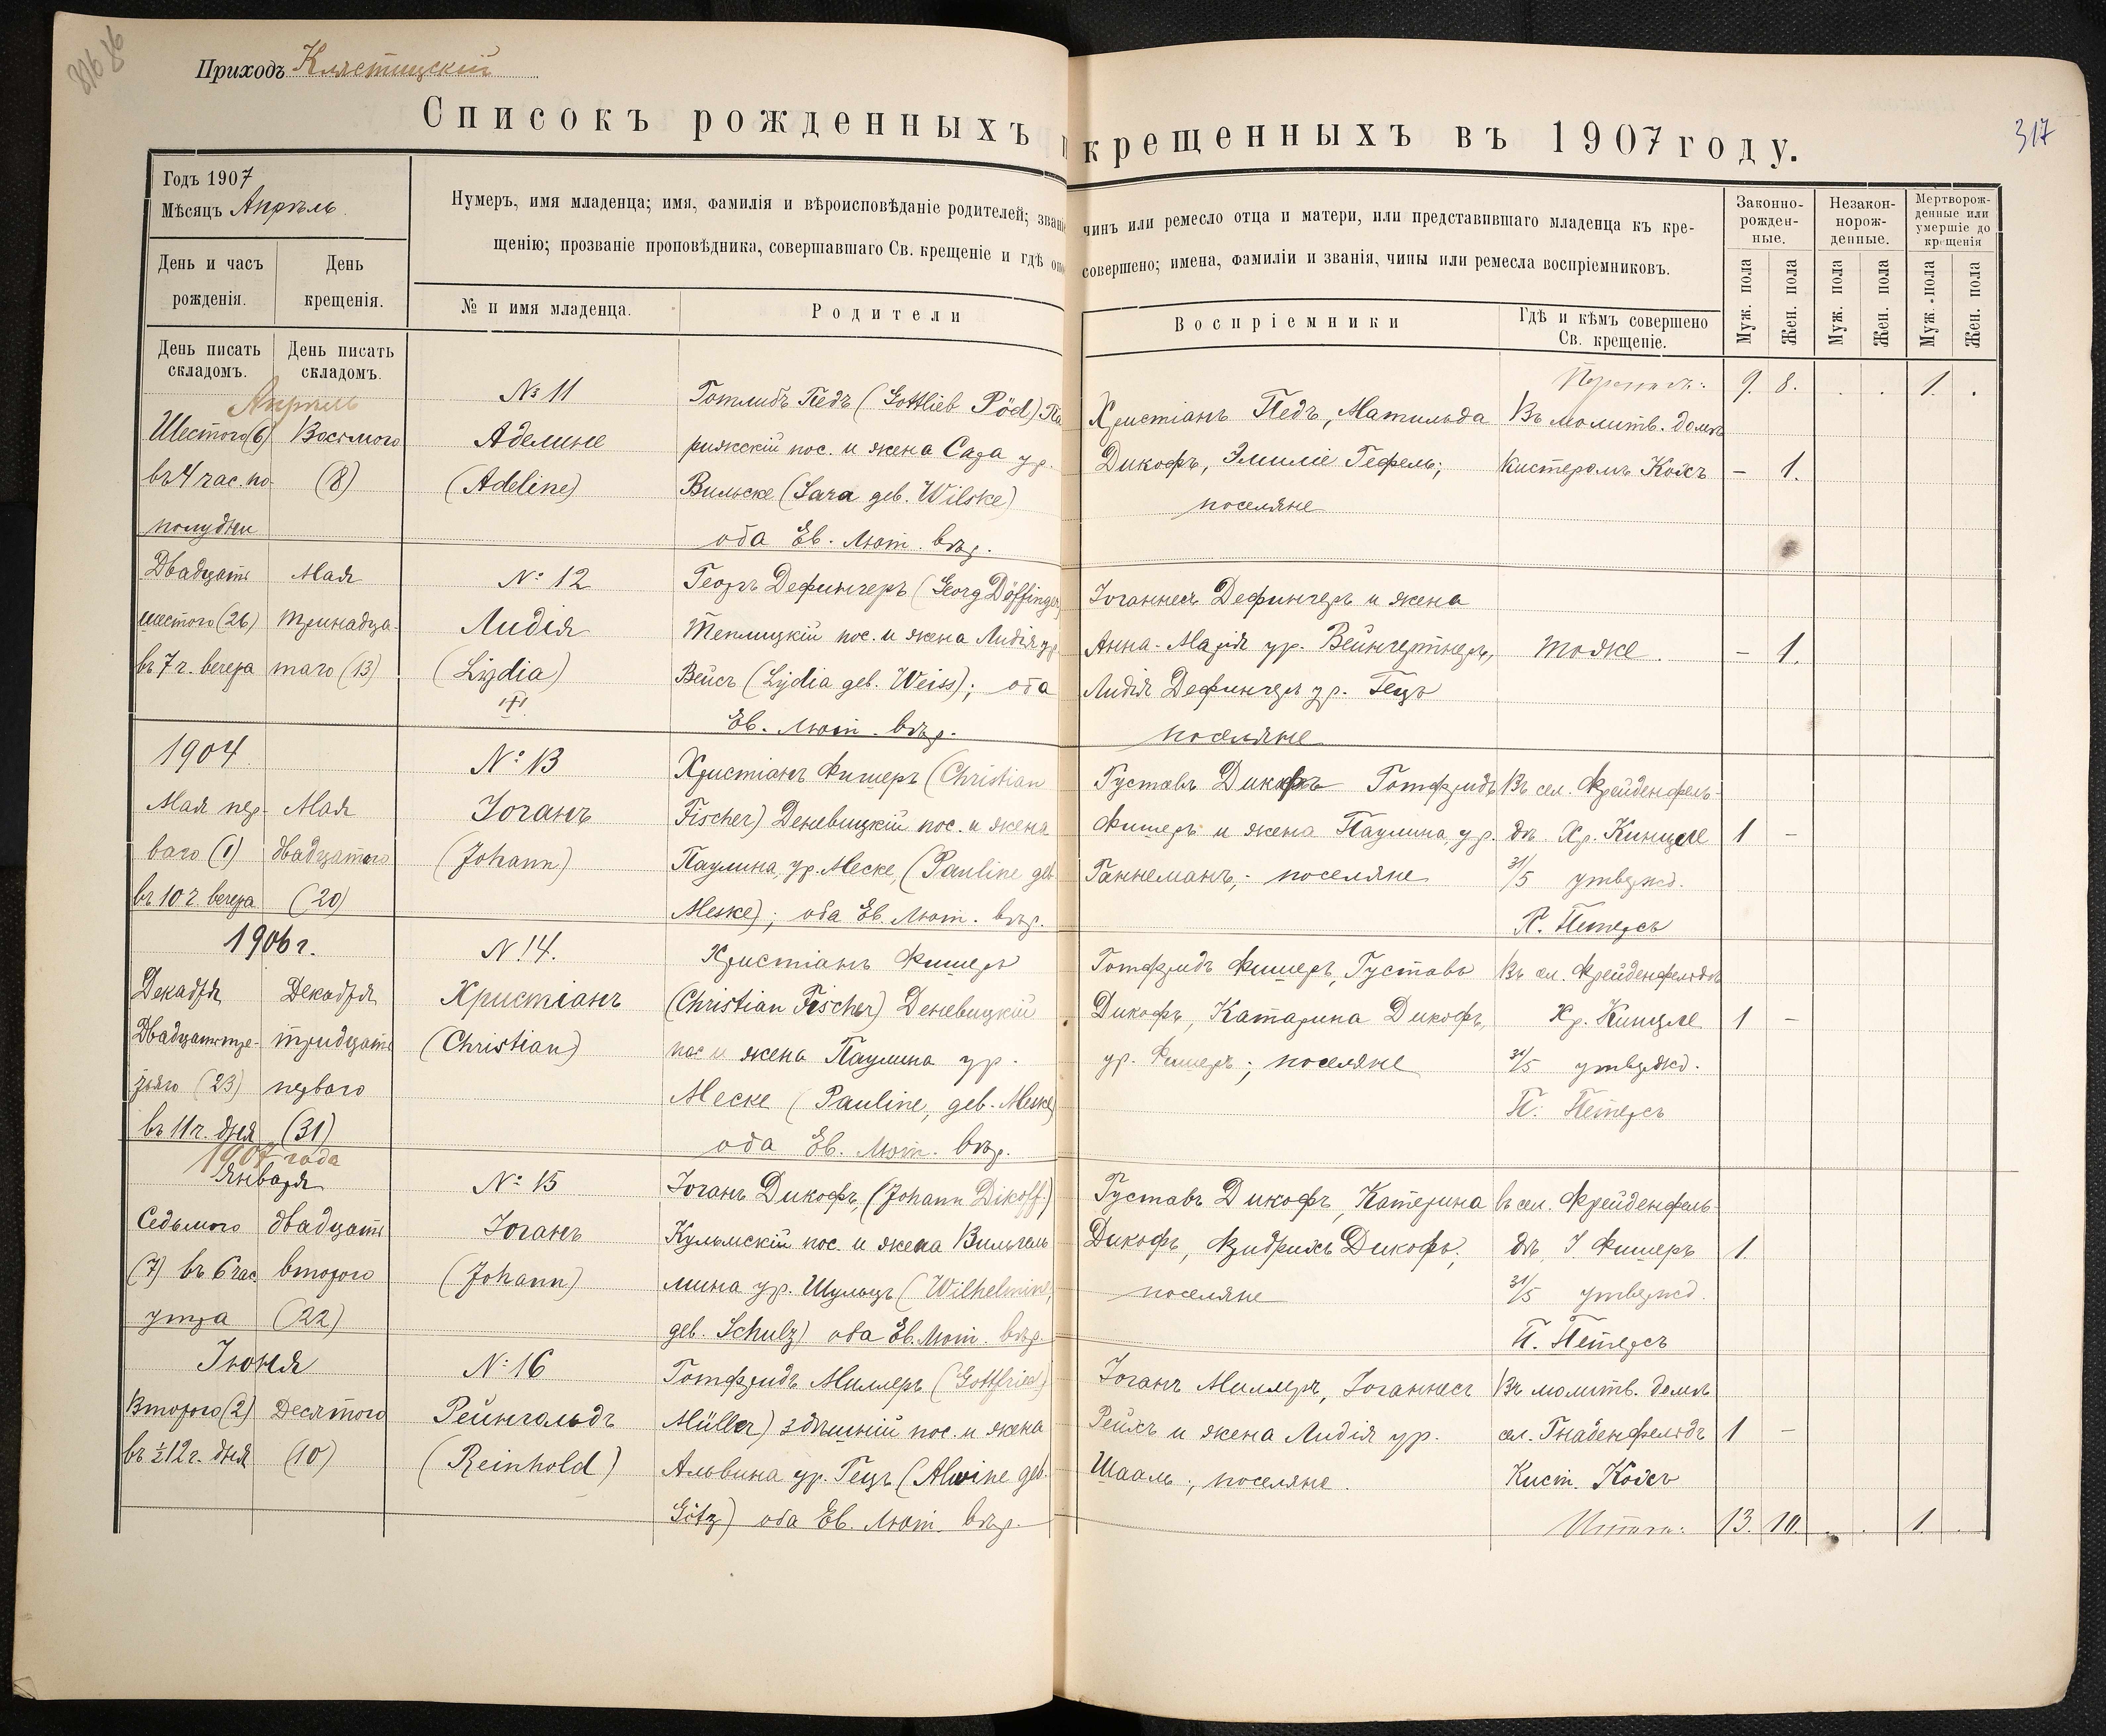 816 86
Приходъ Клястицскій
317
Списокъ рожденныхъ и крещенныхъ въ 1907 году.
Годъ 1907
Мѣсяцъ Апрѣль.
День и часъ рожденія.
День крещенія.
Нумеръ, имя младенца; имя, фамилія и вѣроисповѣданіе родителей; званіе чинъ или ремесло отца и матери, или представившаго младенца къ кре-
щенію; прозваніе проповѣдника, совершавшаго Св. крещеніе и гдѣ оно совершено; имена, фамиліи и званія, чины или ремесла воспріемниковъ.
№ и имя младенца.
Родители
Воспріемники
Гдѣ и кѣмъ совершено Св. крещеніе.
Законно-рожден-ные.
Незакон-норож-денные.
Мертворож-денные или умершіе до крещенія
Муж. пола
Жен. пола
Муж. пола
Жен. пола
Муж. пола
Жен. пола
День писать складомъ.
День писать складомъ.
9. 8. . . 1. .
Апрѣль
Шестого (6)
въ 4 час. по
полудни
Восьмого
(8)
№ 11
Аделине
(Adeline)
Готлибъ Педъ (Gottlieb Pöd) Па
рижскій пос. и жена Сара ур.
Вильске (Sara geb. Wilske)
оба Ев. Лют. вѣр.
Христіанъ Педъ, Матильда
Дикофъ, Эмиліе Гефель;
поселяне
Въ молитв. домѣ
Кистеромъ Кохъ
– 1.
Двадцать
шестого (26)
въ 7 ч. вечера
Мая
тринадца-
таго (13)
№ 12
Лидія
(Lydia)
Георгъ Дефингеръ (Georg Döffinger)
Теплицкій пос. и жена Лидія ур.
Вейсъ (Lydia geb. Weiss); оба
Ев. Лют. вѣр.
Іоганнесъ Дефингеръ и жена
Анна-Марія ур. Вейнгертнеръ,
Лидія Дефингеръ ур. Гецъ
поселяне
тоже.
– 1.
1904
Мая пер-
ваго (1)
въ 10 ч. вечера
Мая
двадцатого
(20)
№ 13
Іоганъ
(Johann)
Христіанъ Фишеръ (Christian
Fischer) Деневицкій пос. и жена
Паулина, ур. Меске, (Pauline geb.
Meske); оба Ев. Лют. вѣр.
Густавъ Дикофъ Готфридъ
Фишеръ и жена Паулина, ур.
Ганнеманъ; поселяне
Въ сел. Фрейденфель-
дѣ Хр. Кинцле
31/5 утвержд.
П. Петерсъ
1 –
1906 г.
Декабря
Двадцатьтре-
тьяго (23)
въ 11 ч. дня
Декабря
тридцать
перваго
(31)
№ 14.
Христіанъ
(Christian)
Христіанъ Фишеръ
(Christian Fischer) Деневицкій
пос. и жена Паулина ур.
Меске (Pauline, geb. Meske)
оба Ев. Лют. вѣр.
Готфридъ Фишеръ, Густавъ
Дикофъ, Катарина Дикофъ,
ур. Фишеръ; поселяне
Въ сел. Фрейденфельдѣ
Хр. Кинцле
31/5 утвержд.
П. Петерсъ
1 –
1907 года
Января
Седьмого
(7) въ 6 час.
утра
двадцать
второго
(22)
№ 15
Іоганъ
(Johann)
Іоганъ Дикофъ, (Johann Dikoff.)
Кульмскій пос. и жена Вильгель
мина ур. Шульцъ (Wilhelmine,
geb. Schulz) оба Ев. Лют. вѣр.
Густавъ Дикофъ, Катерина
Дикофъ, Фридрихъ Дикофъ;
поселяне
въ сел. Фрейденфель-
дѣ, І. Фишеръ
31/5 утвержд.
П. Петерсъ
1.
Іюня
Второго (2)
въ ½12 ч. дня
Десятого
(10)
№ 16
Рейнгольдъ
(Reinhold)
Готфридъ Миллеръ (Gottfried
Müller) здѣшній пос. и жена
Альвина ур. Гецъ (Alwine geb.
Götz) оба Ев. Лют. вѣр.
Іоганъ Миллеръ, Іоганнесъ
Рейхъ и жена Лидія ур.
Шааль; поселяне.
Въ молитв. домѣ
сел. Гнаденфельдъ
Кист. Кохъ
1 –
Итого: 13. 10. . . 1. .